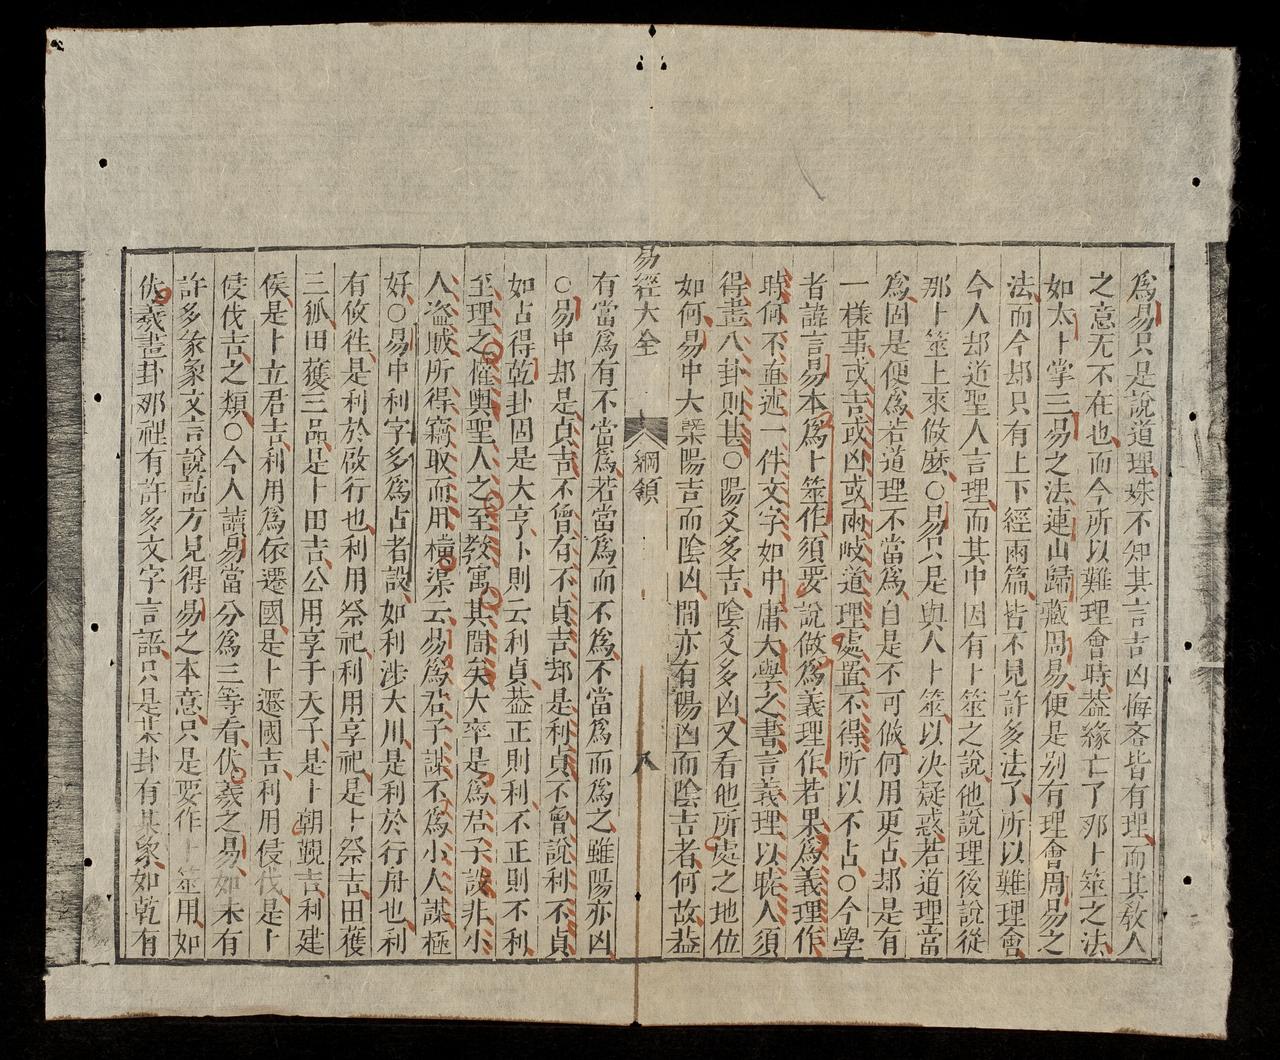 為易只是說道理殊不知其言吉凶悔吝皆有理而其敎人
之意无不在也而今所以難理會時葢緣亡了那卜筮之法
如太卜掌三易之法連山歸藏周易便是别有理會周易之
法而今却只有上下經兩篇皆不見許多法了所以難理會
今人却道聖人言理而其中因有卜筮之說他說理後說從
那卜筮上來做麽○易只是與人卜筮以決疑惑若道理當
為固是便為若道理不當為自是不可做何用更占却是有
一樣事或吉或凶或兩岐道理處置不得所以不占○今學
者諱言易本為卜筮作須要說做為義理作若果為義理作
時何不直述一件文字如中庸大學之書言義理以曉人須
得畫八卦則甚○陽爻多吉陰爻多凶又看他所處之地位
如何易中大槩陽吉而陰凶間亦有陽凶而陰吉者何故葢
易經大全 綱領 八
有當為有不當為若當為而不為不當為而為之雖陽亦凶
○易中却是貞吉不曾有不貞吉却是利貞不曾說利不貞
如占得乾卦固是大亨卜則云利貞葢正則利不正則不利
至理之權輿聖人之至教寓其間矣大率是為君子設非小
人盜賊所得竊取而用橫渠云易為君子謀不為小人謀極
好○易中利字多為占者設如利涉大川是利於行舟也利
有攸往是利於啟行也利用祭祀利用享祀是卜祭吉田獲
三狐田獲三品是卜田吉公用享于天子是卜朝覲吉利建
侯是卜立君吉利用為依遷國是卜遷國吉利用侵伐是卜
侵伐吉之類○今人讀易當分為三等看伏羲之易如未有
許多彖象文言說話方見得易之本意只是要作卜筮用如
伏羲畫卦那裡有許多文字言語只是某卦有某象如乾有